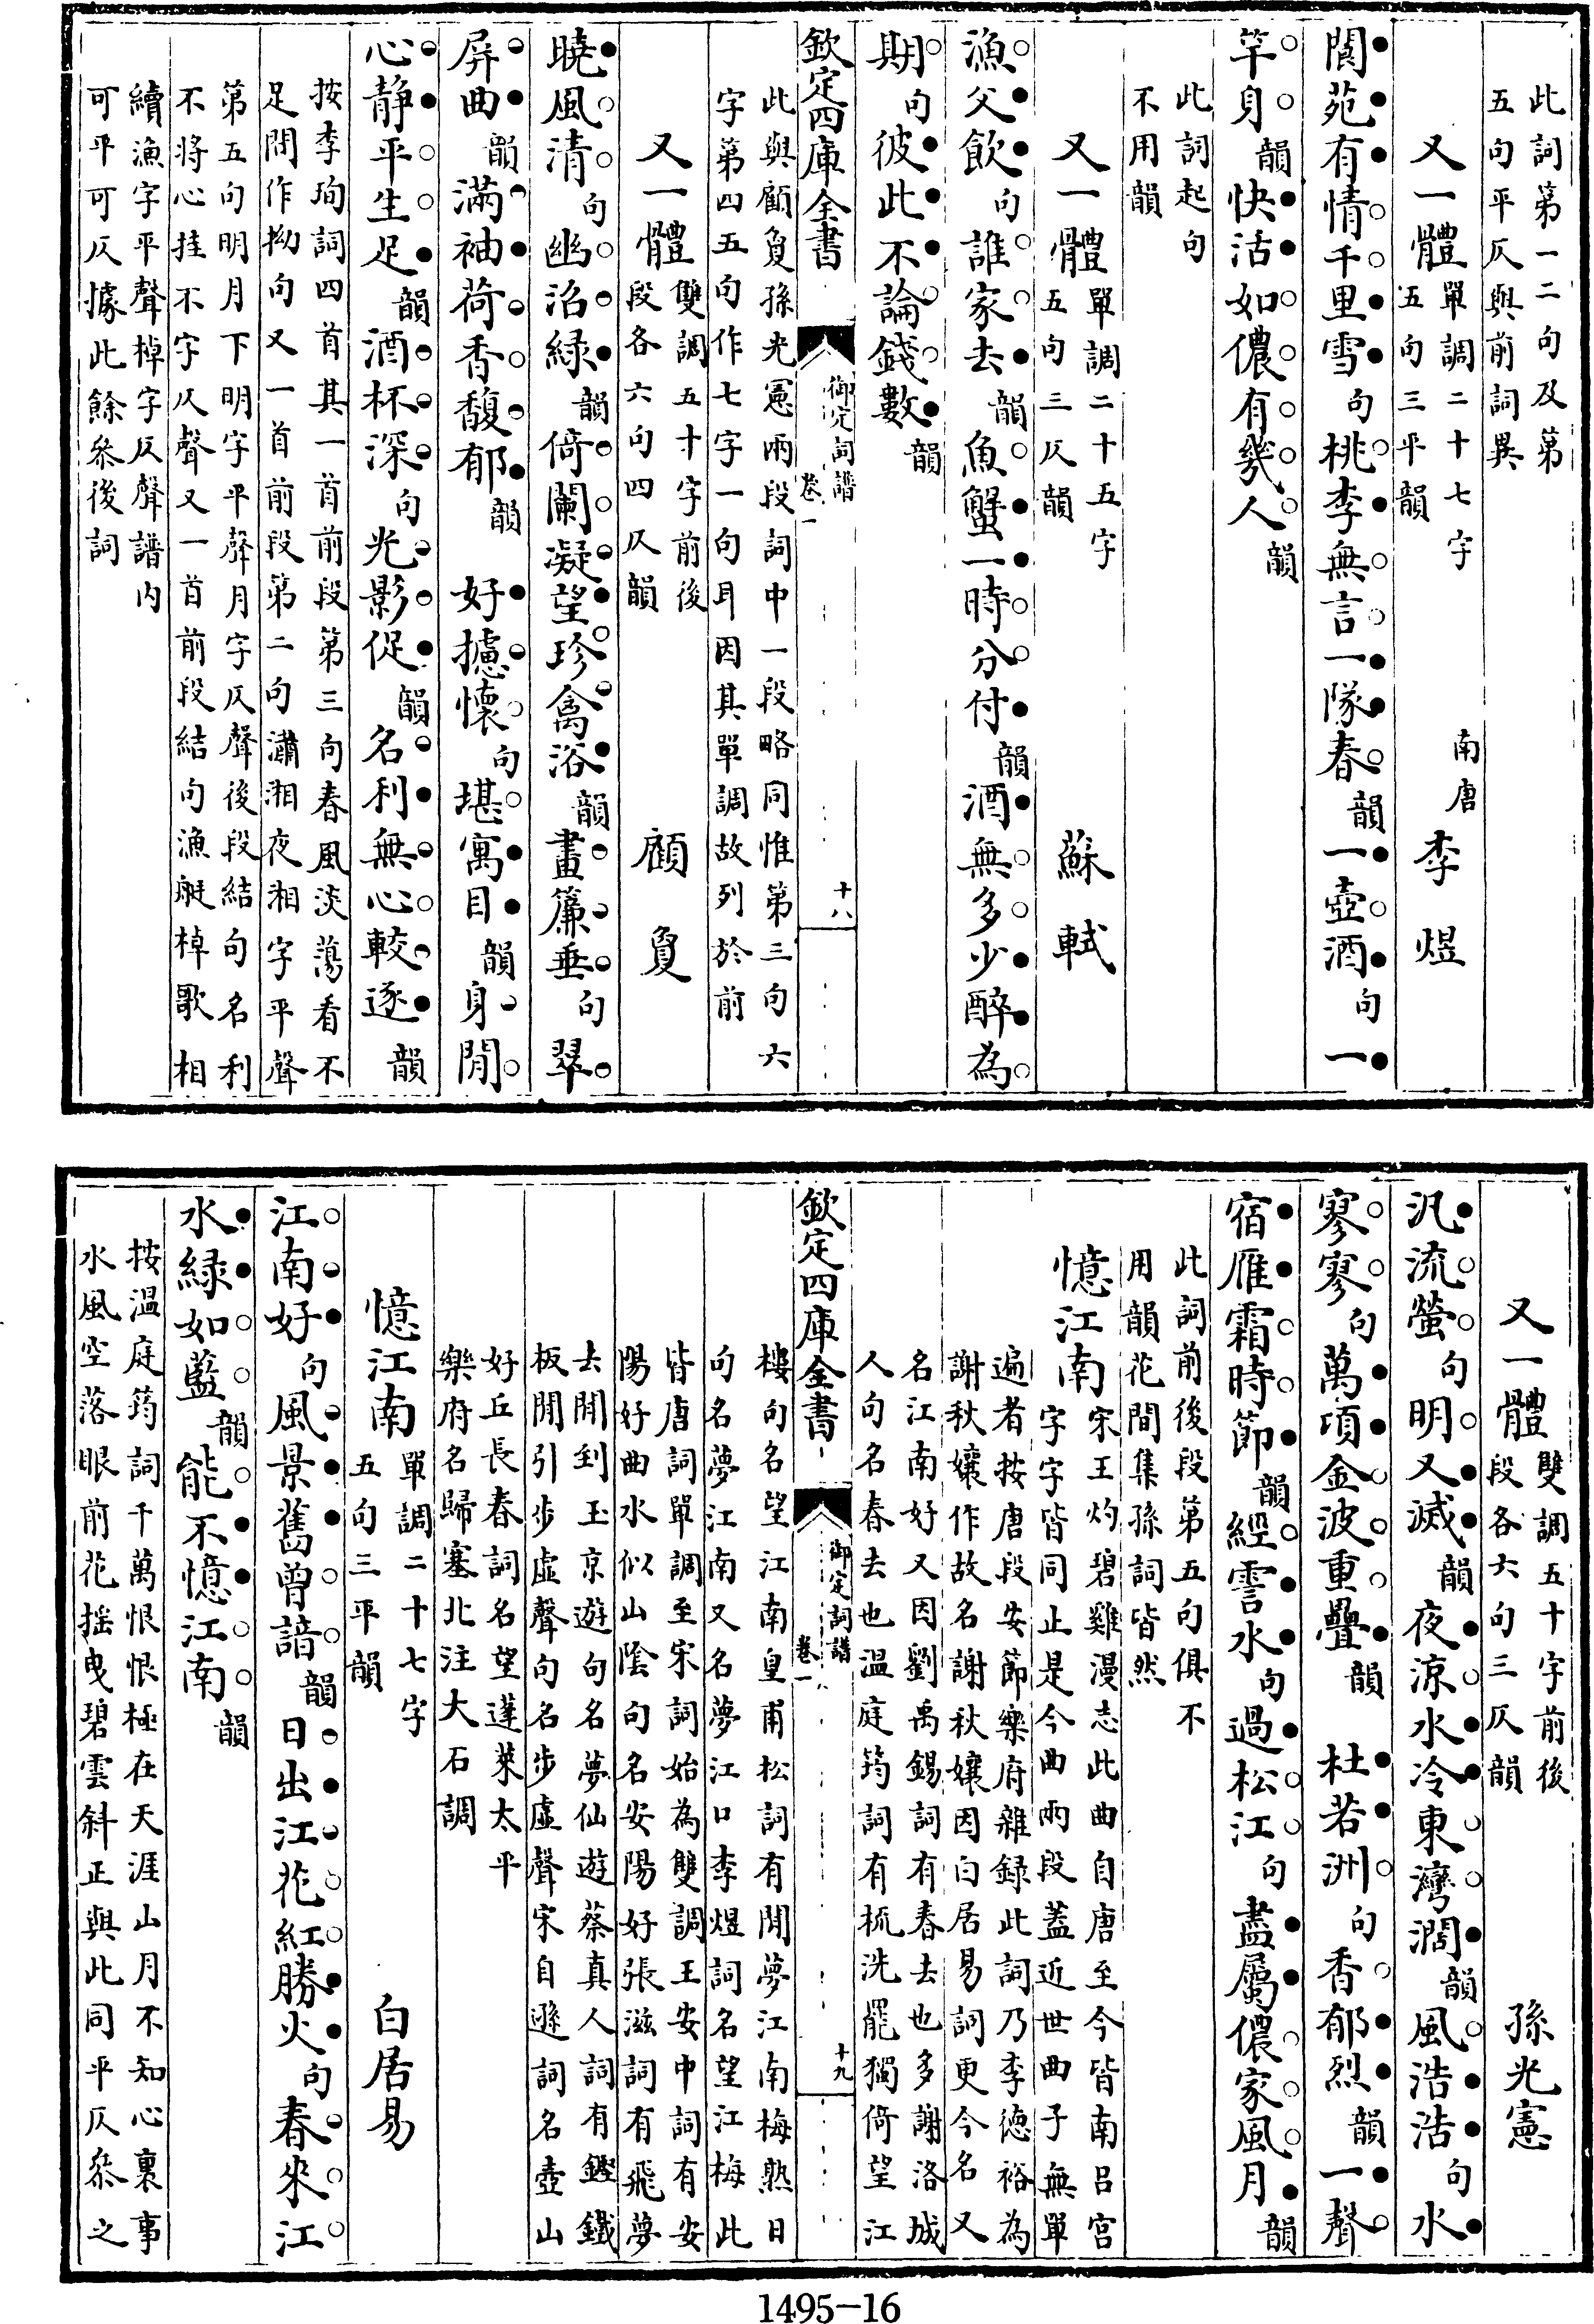 此詞第一二句及第
五句平仄與前詞異
又一體 單調二十七字
五句三平韻 南唐 李煜
閬苑有情千里雪句桃李無言一隊春韻一壺酒句一
竿身韻快活如儂有幾人韻
此詞起句
不用韻
又一體 單調二十五字
五句三仄韻 蘇軾
漁父飲句誰家去韻魚蟹一時分付韻酒無多少醉為
期句彼此不論錢數韻
欽定四庫全書 御定詞譜 卷一 十八
此與顧敻孫光憲兩段詞中一段略同惟第三句六
字第四五句作七字一句耳因其單調故列於前
又一體 雙調五十字前後
段各六句四仄韻 顧敻
曉風清句幽沼綠韻倚闌凝望珍禽浴韻畫簾垂句翠
屏曲韻滿袖荷香馥郁韻 好攄懷句堪寓目韻身閒
心静平生足韻酒杯深句光影促韻名利無心較逐韻
按李珣詞四首其一首前段第三句春風淡蕩看不
足閒作拗句又一首前段第二句瀟湘夜湘字平聲
第五句明月下明字平聲月字仄聲後段結句名利
不將心挂不字仄聲又一首前段結句漁艇棹歌相
續漁字平聲棹字仄聲譜内
可平可仄據此餘叅後詞
又一體 雙調五十字前後
段各六句三仄韻 孫光憲
汎流螢句明又滅韻夜涼水冷東灣濶韻風浩浩句水
寥寥句萬頃金波重疊韻 杜若洲句香郁烈韻一聲
宿雁霜時節韻經霅水句過松江句盡屬儂家風月韻
此詞前後段第五句俱不
用韻花間集孫詞皆然
憶江南 宋王灼碧雞漫志此曲自唐至今皆南吕宫
字字皆同止是今曲兩段蓋近世曲子無單
遍者按唐段安節樂府雜録此詞乃李徳裕為
謝秋孃作故名謝秋孃因白居易詞更今名又
名江南好又因劉禹錫詞有春去也多謝洛城
人句名春去也温庭筠詞有梳洗罷獨倚望江
欽定四庫全書 御定詞譜 卷一 十九
樓句名望江南皇甫松詞有閒夢江南梅熟日
句名夢江南又名夢江口李煜詞名望江梅此
皆唐詞單調至宋詞始為雙調王安中詞有安
陽好曲水似山陰句名安陽好張滋詞有飛夢
去閒到玉京遊句名夢仙遊蔡真人詞有鏗鐵
板閒引步虚聲句名步虚聲宋自遜詞名壺山
好丘長春詞名望蓬萊太平
樂府名歸塞北注大石調
憶江南 單調二十七字
五句三平韻 白居易
江南好句風景舊曾諳韻日出江花紅勝火句春來江
水緑如藍韻能不憶江南韻
按温庭筠詞千萬恨恨極在天涯山月不知心裏事
水風空落眼前花摇曳碧雲斜正與此同平仄叅之
1495-16